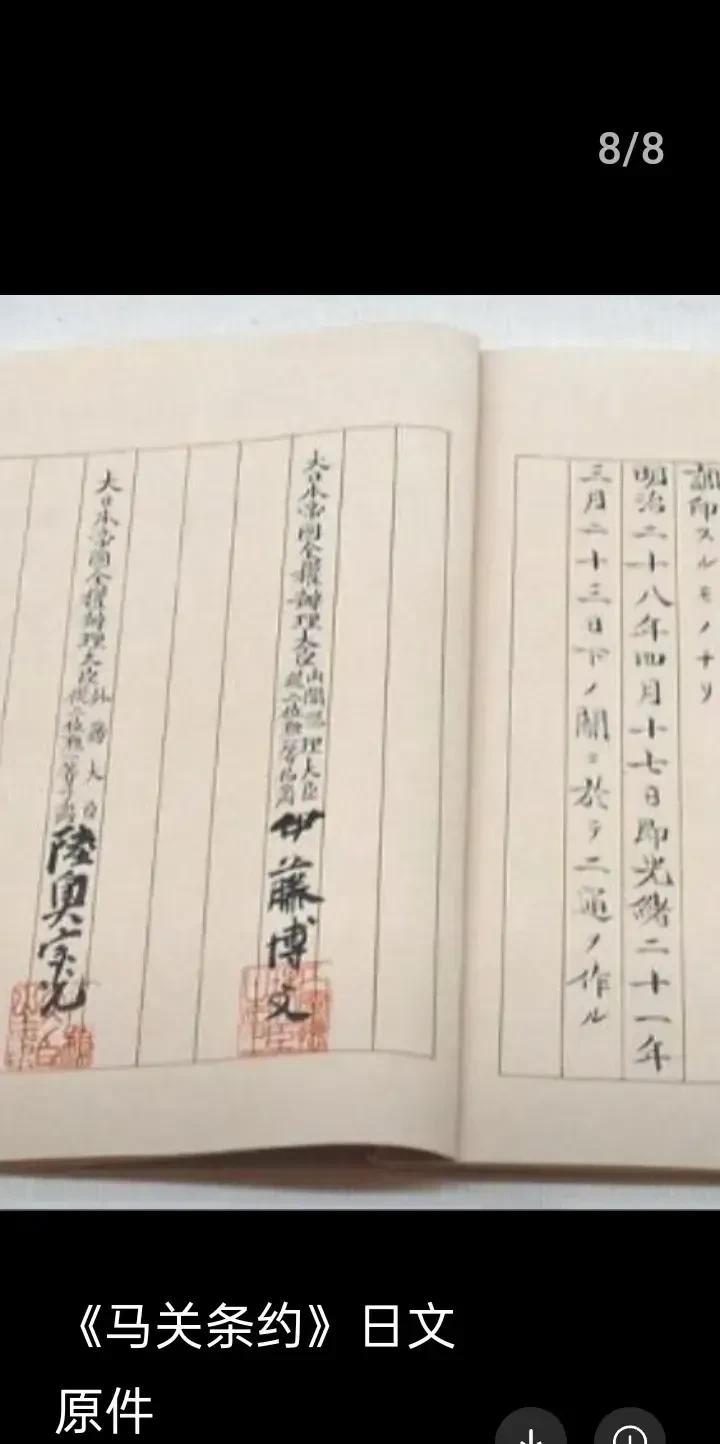 8/8
調印スルモノナリ
明治二十八年四月十七日即光緒二十一年
三月二十三日下ノ関ニ於テ二通ヲ作ル
大日本帝國全權辦理大臣
内閣總理大臣
從二位勲一等伯爵
伊藤博文
大日本帝國全權辦理大臣
外務大臣
從二位勲一等子爵
陸奥宗光
《马关条约》日文
原件